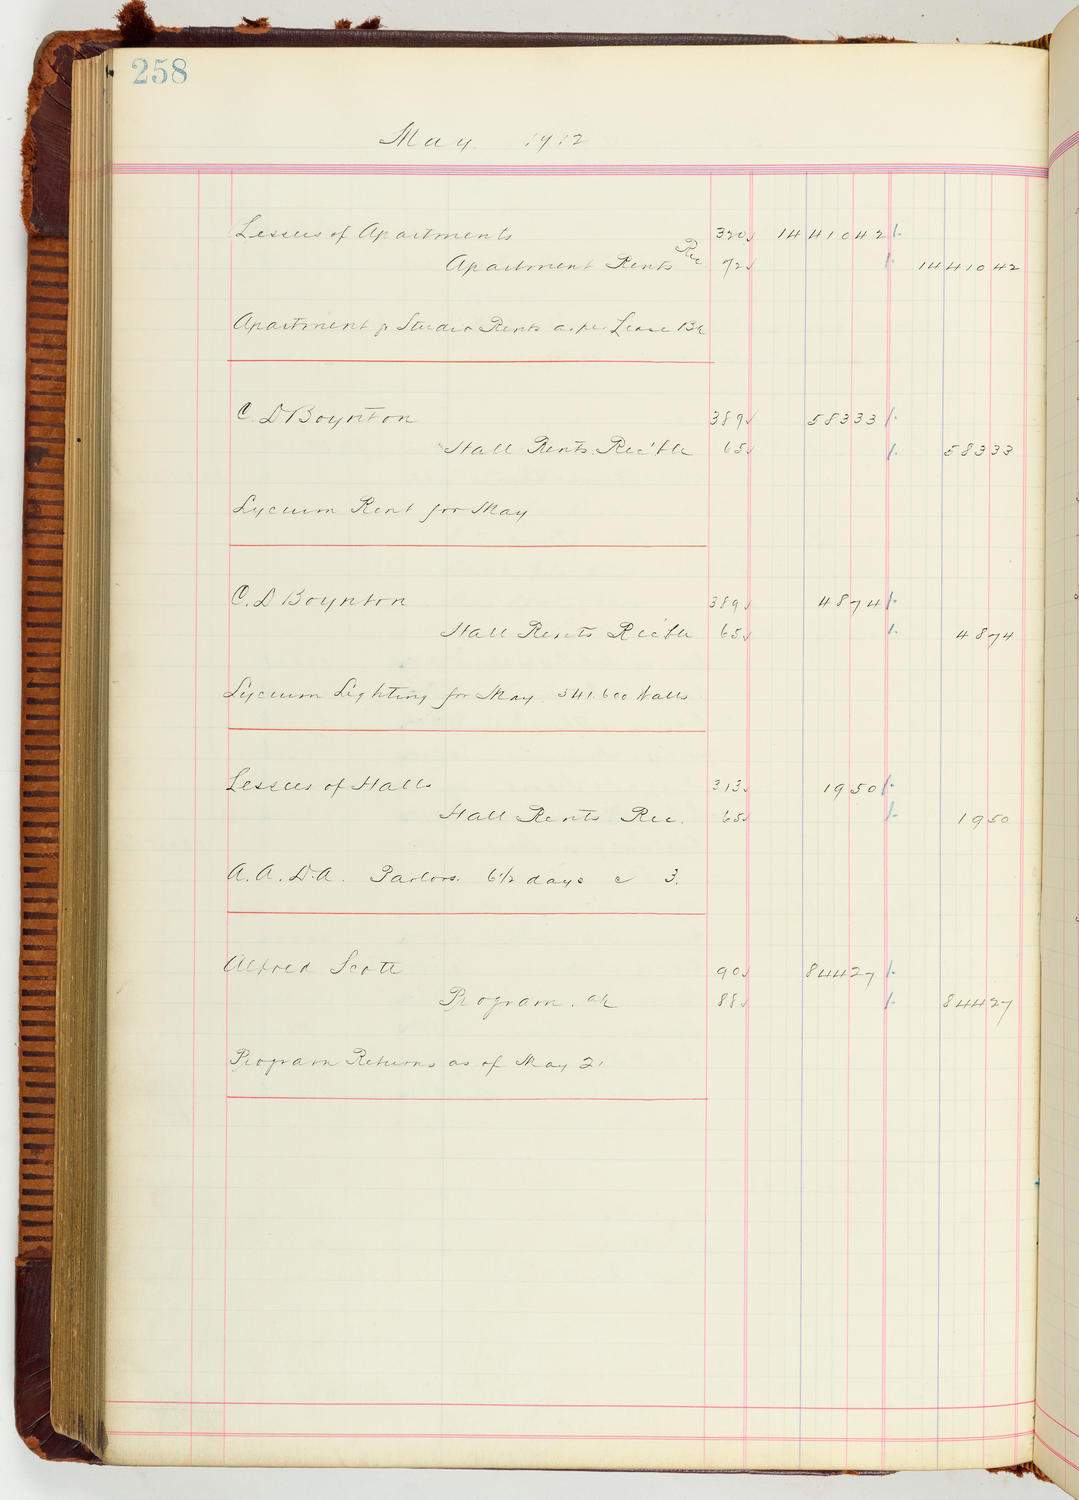 258
May 1912
Lessees of Apartments 320✓ 1441042
Apartment Rents Rec 72✓ 1441042
Apartment & Studio Rents as per Lease Bk
C. D Boynton 389✓ 58333
Hall Rents Rec'ble 65✓ 58333
Lyceum Rent for May
C. D Boynton 389✓ 4874
Hall Rents Rec'ble 65✓ 4874
Lyceum Lighting for May 541.600 Watts
Lessees of Halls 313✓ 1950
Hall Rents Rec. 65✓ 1950
A. A. D. A. Parlors. 6 1/2 days @ 3.
Alfred Scott 90✓ 84427
Program a/c 88✓ 84427
Program Returns as of May 21